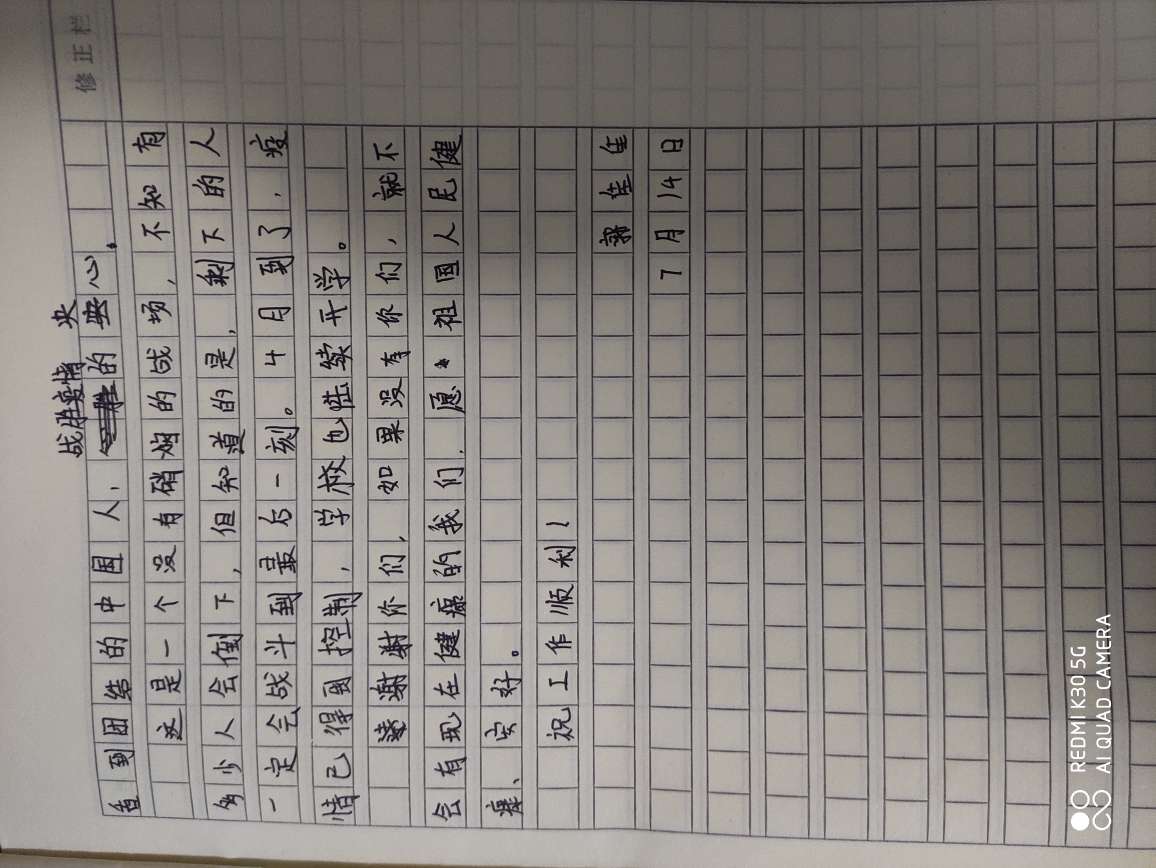 修正栏
战胜疫情 央
看到团结的中国人，的决心。
这是一个没有硝烟的战场，不知有
多少人会倒下，但知道的是，剩下的人
一定会战斗到最后一刻。4月到了，疫
情已得到控制，学校也陆续开学。
谢谢你们，如果没有你们，就不
会有现在健康的我们，愿祖国人民健
康、安好。
祝工作顺利！
郭佳佳
7月14日
REDMI K30 5G
AI QUAD CAMERA